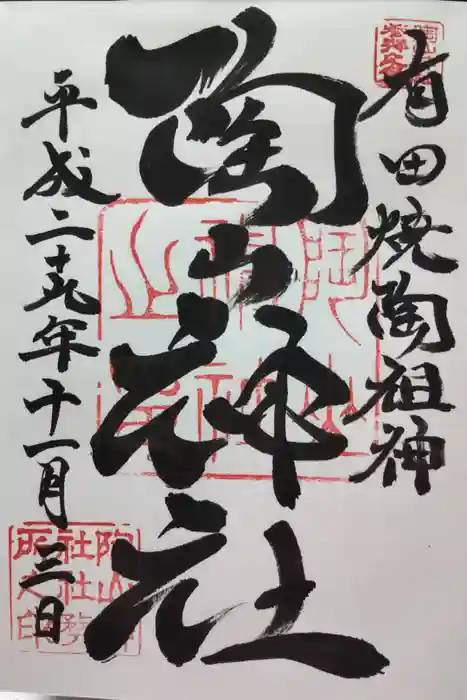 有田焼陶祖神
陶山神社
平成二十九年十一月三日
陶山神社社務所之印